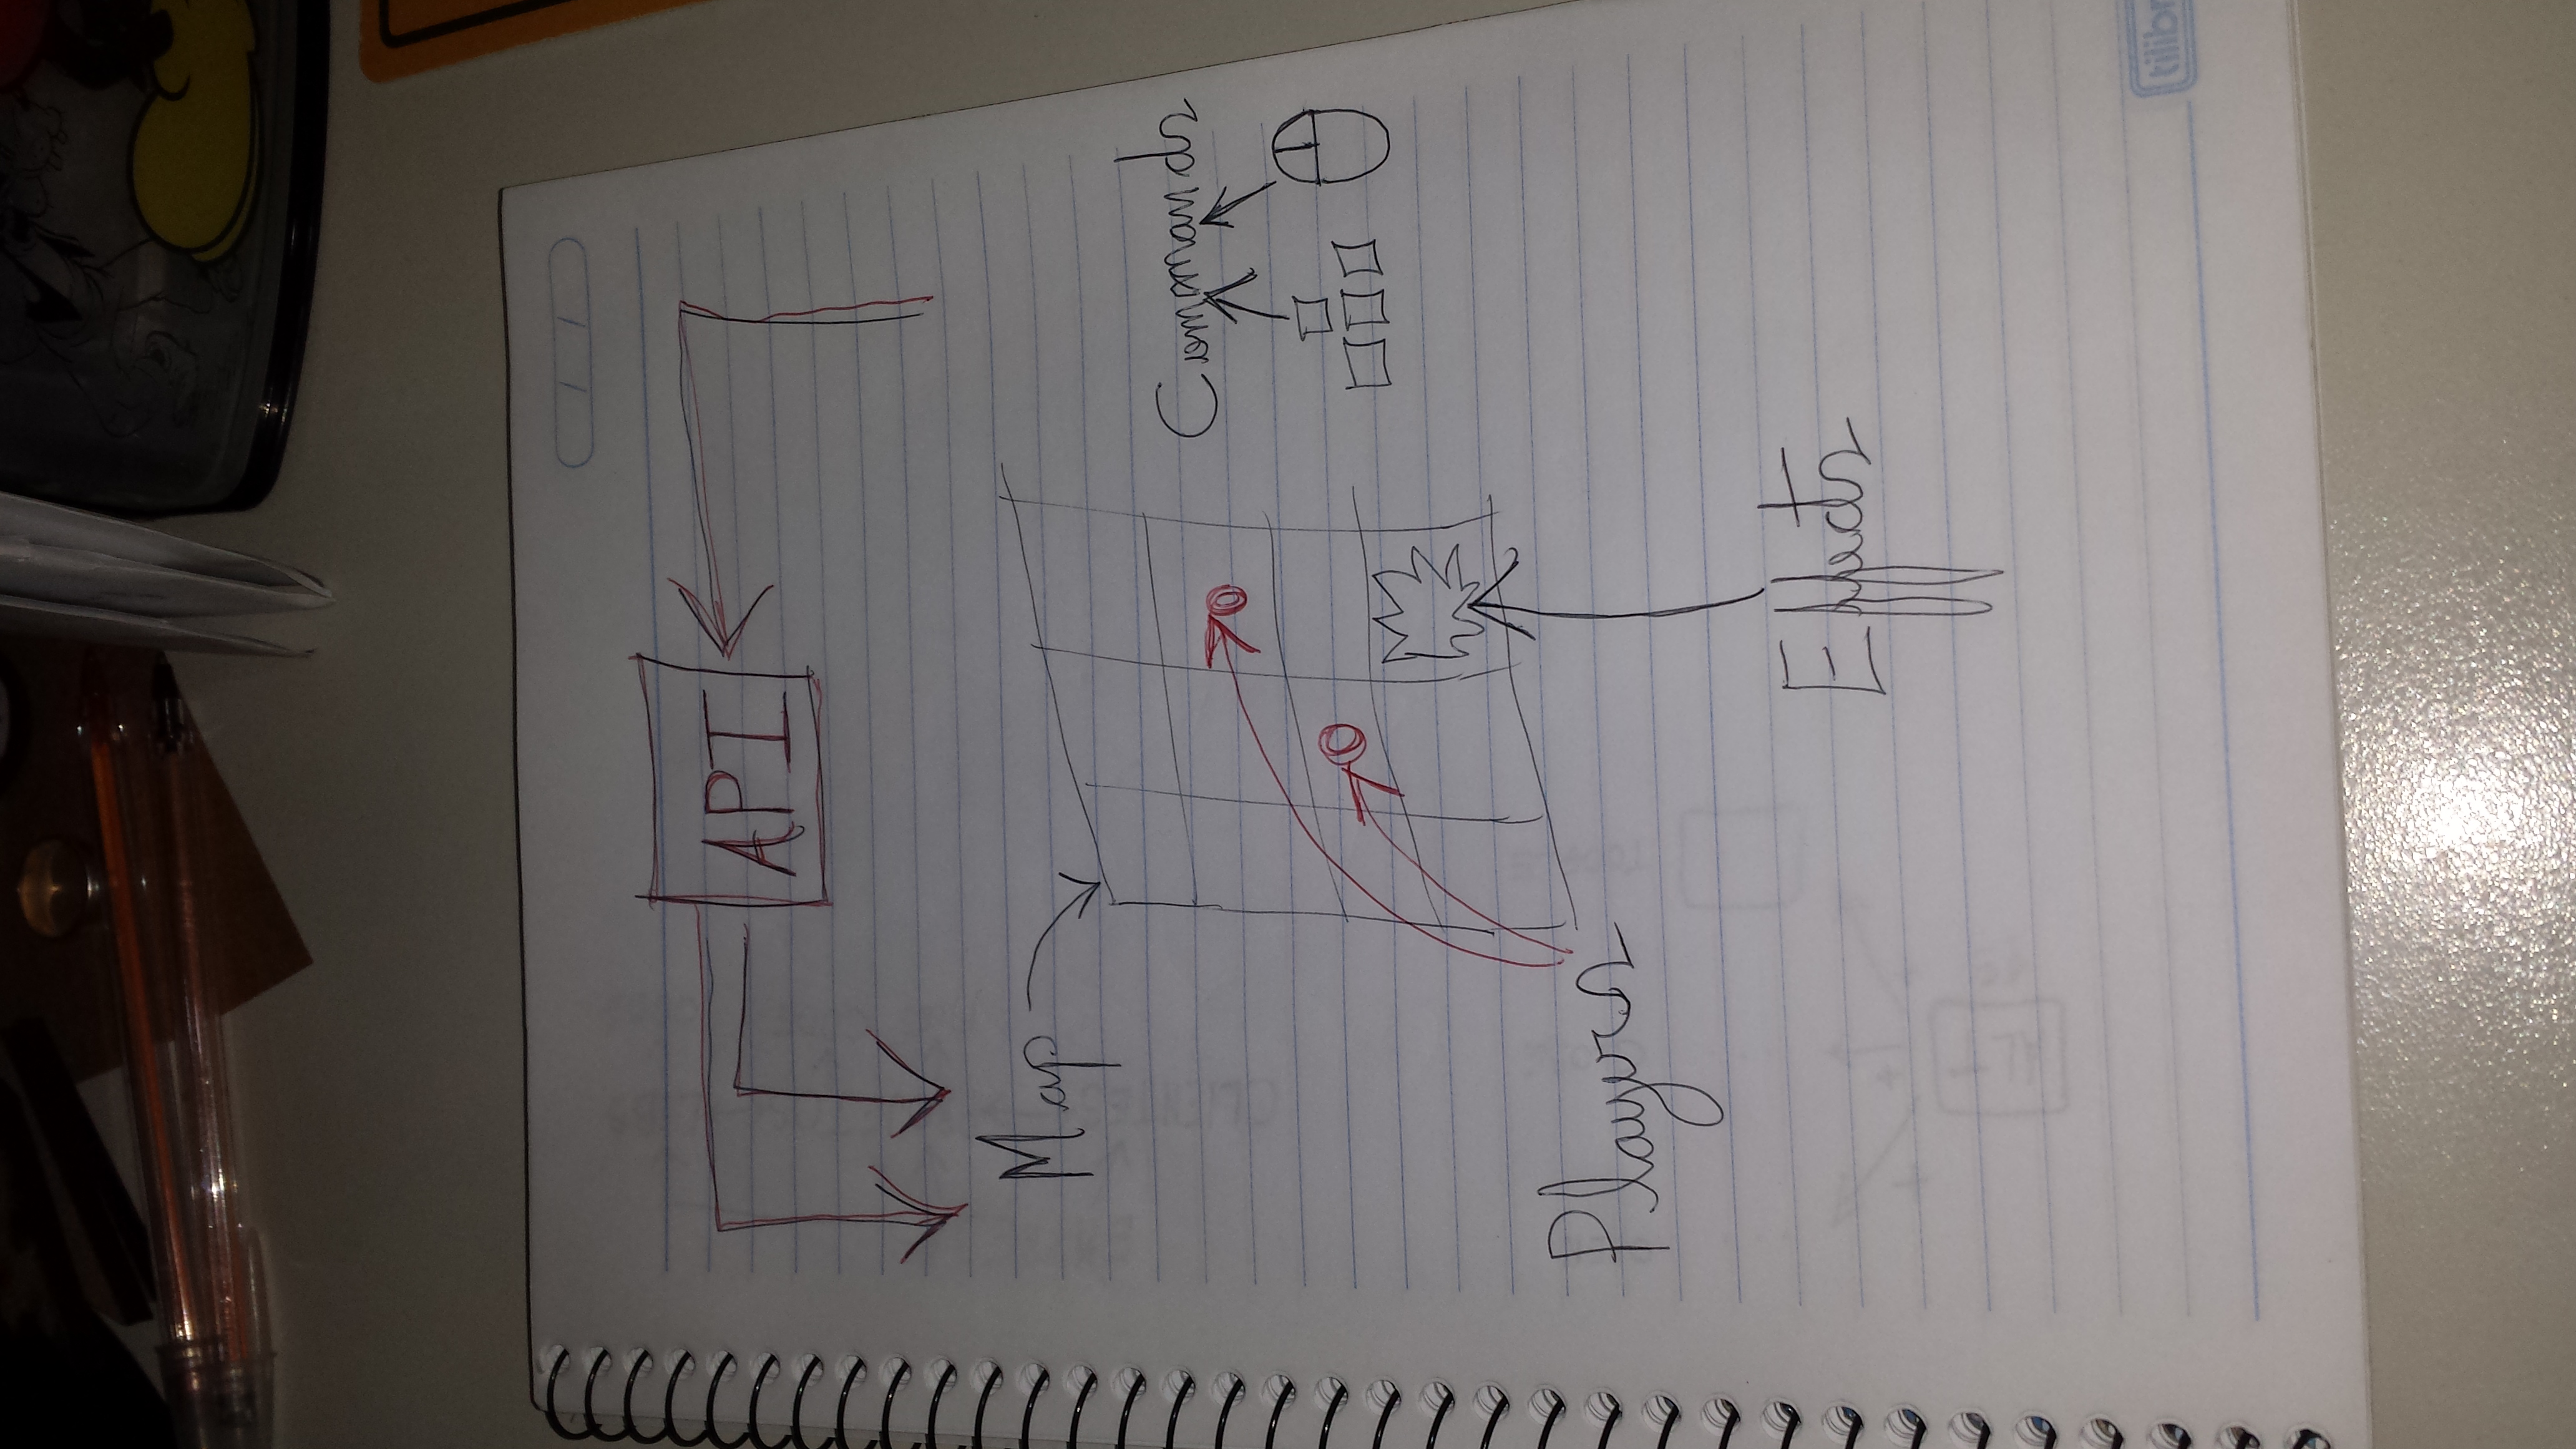 API
Map
Commands
Players
Effects